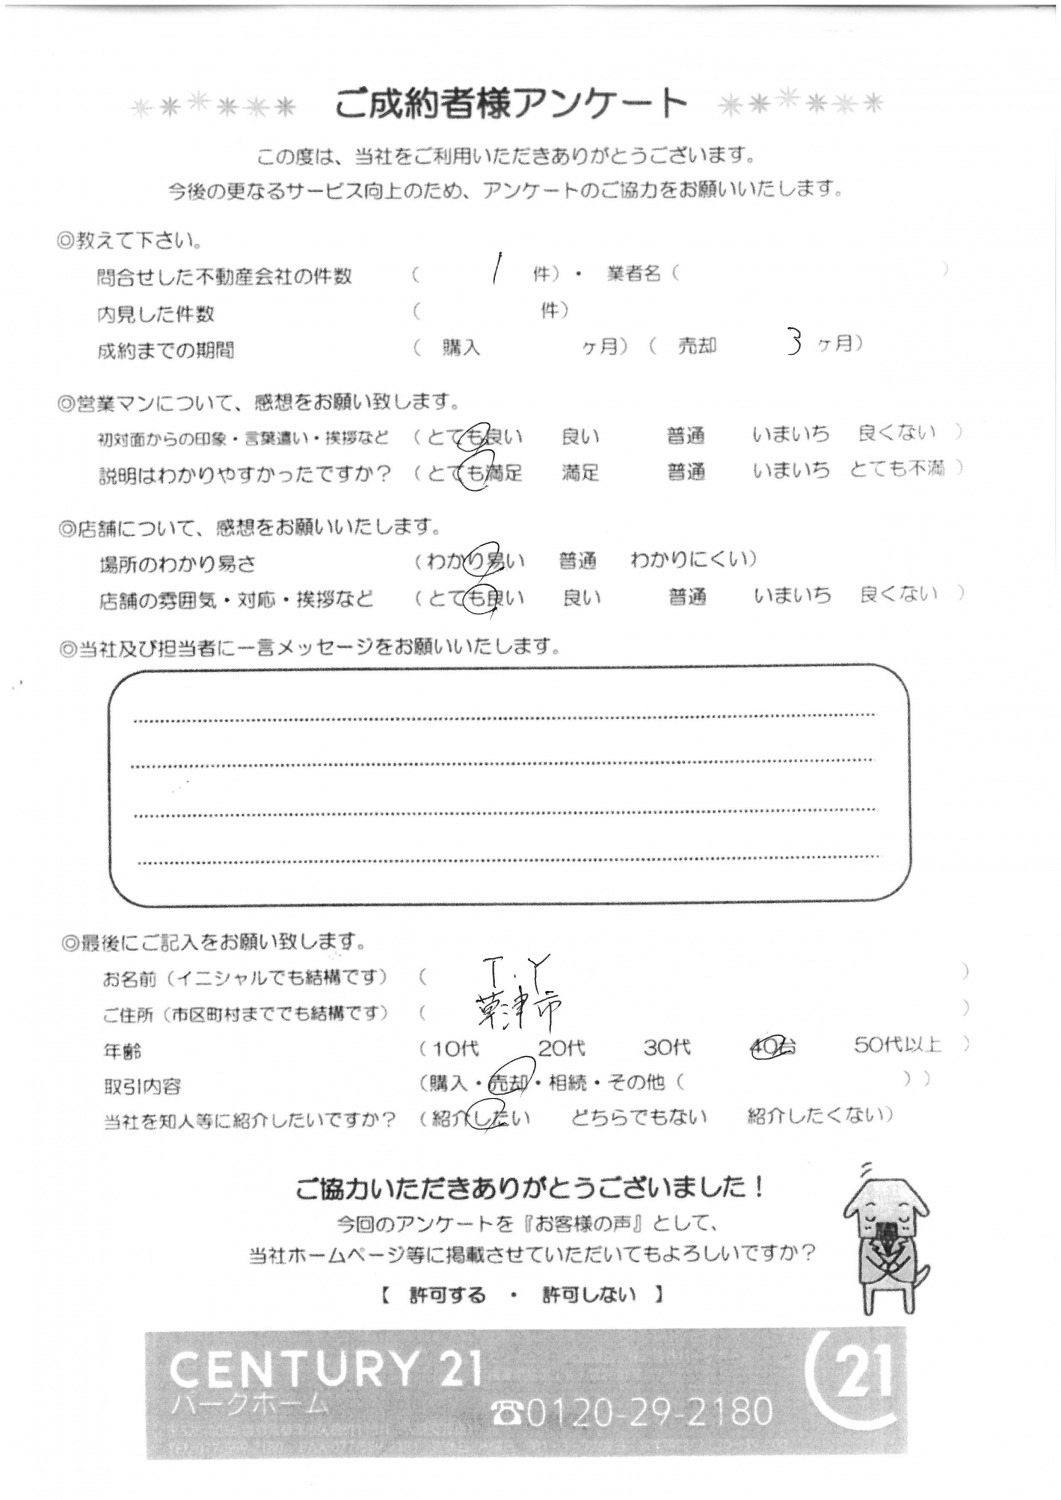 ご成約者様アンケート
この度は、当社をご利用いただきありがとうございます。
今後の更なるサービス向上のため、アンケートのご協力をお願いいたします。
◎教えて下さい。
問合せした不動産会社の件数 ( 1 件)・ 業者名 ( )
内見した件数 ( 件)
成約までの期間 ( 購入 ヶ月) ( 売却 3 ヶ月)
◎営業マンについて、感想をお願い致します。
初対面からの印象・言葉遣い・挨拶など (とても良い 良い 普通 いまいち 良くない )
説明はわかりやすかったですか? (とても満足 満足 普通 いまいち とても不満 )
◎店舗について、感想をお願いいたします。
場所のわかり易さ (わかり易い 普通 わかりにくい)
店舗の雰囲気・対応・挨拶など (とても良い 良い 普通 いまいち 良くない )
◎当社及び担当者に一言メッセージをお願いいたします。
◎最後にご記入をお願い致します。
お名前(イニシャルでも結構です) ( T.Y )
ご住所(市区町村まででも結構です) ( 草津市 )
年齢 (10代 20代 30代 40台 50代以上 )
取引内容 (購入・売却・相続・その他 ( ) )
当社を知人等に紹介したいですか? (紹介したい どちらでもない 紹介したくない)
ご協力いただきありがとうございました!
今回のアンケートを『お客様の声』として、
当社ホームページ等に掲載させていただいてもよろしいですか?
【 許可する ・ 許可しない 】
CENTURY 21
パークホーム
☎0120-29-2180
21